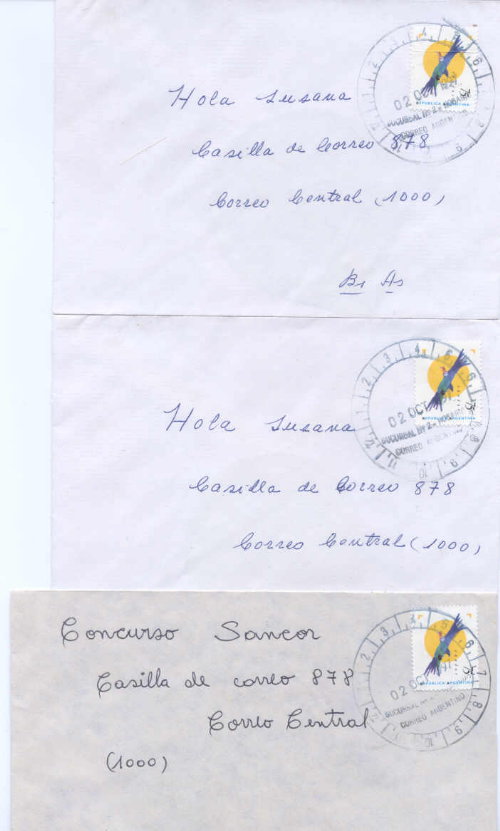 Hola Susana
Casilla de Correo 878
Correo Central (1000)
Bs As
02 OCT
SUCURSAL Nº 2 -
CORREO ARGENTINO
REPUBLICA ARGENTINA
75
Hola Susana
Casilla de Correo 878
Correo Central (1000)
02 OCT
SUCURSAL Nº 2 -
CORREO ARGENTINO
75
Concurso Sancor
Casilla de correo 878
Correo Central
(1000)
02 OCT
SUCURSAL
CORREO ARGENTINO
REPUBLICA ARGENTINA
75